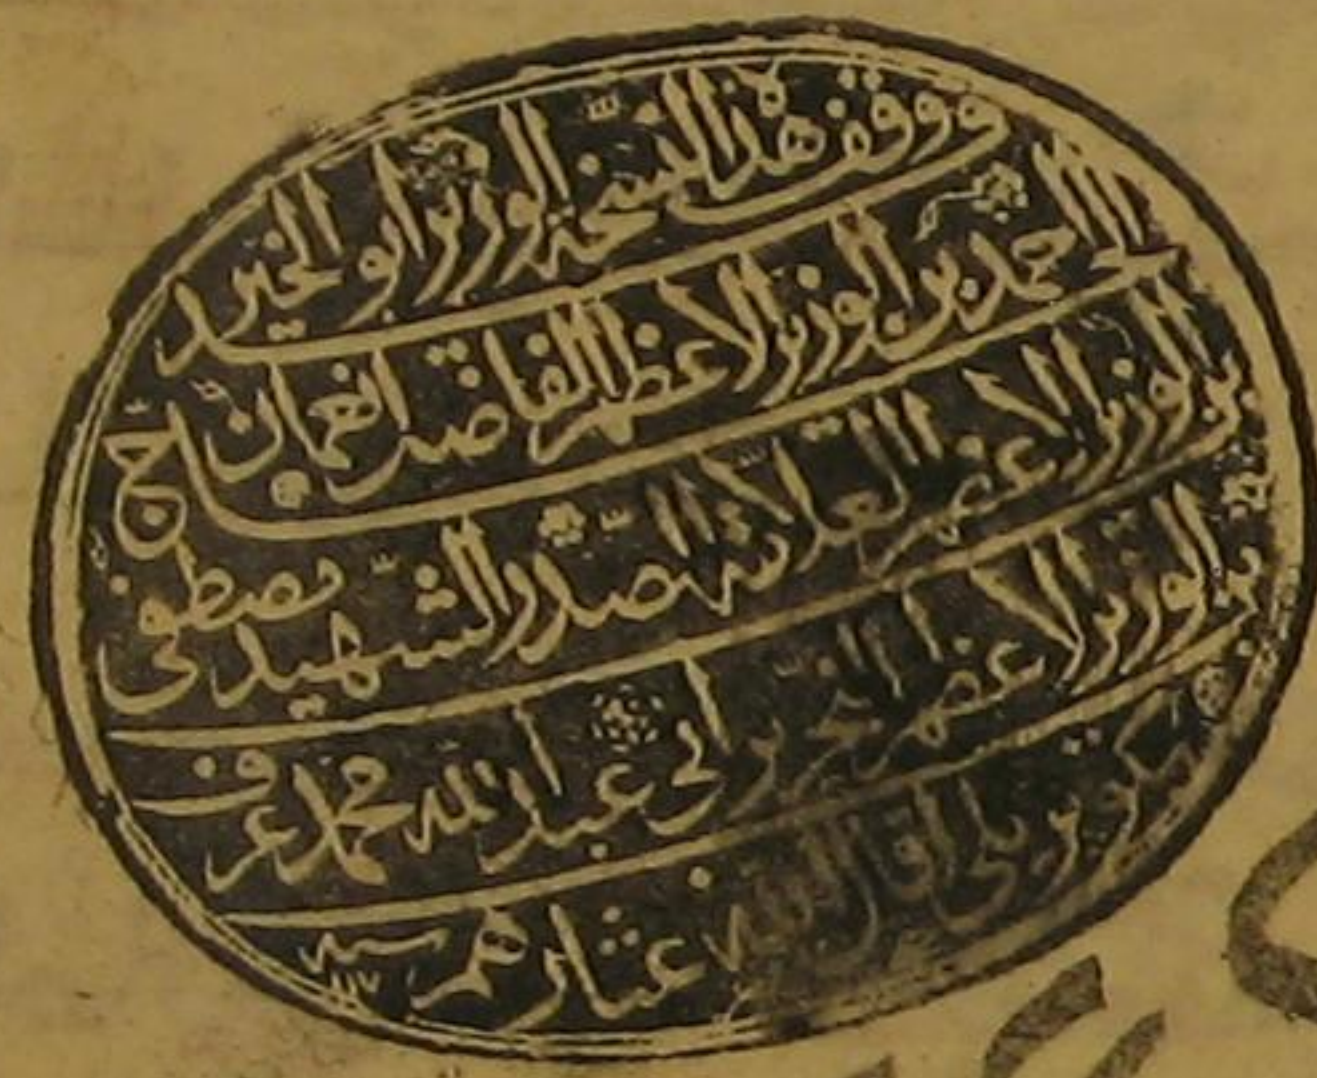 قد وقف هذه النسخة الوزير ابو الخير
الحاج احمد بن الوزير الاعظم الفاضل نعمان
بن الوزير الاعظم العلامة الصدر الشهيد مصطفى
بن الوزير الاعظم النحرير ابى عبد الله محمد عرف
بكوبريلى اقال الله عثارهم سنه